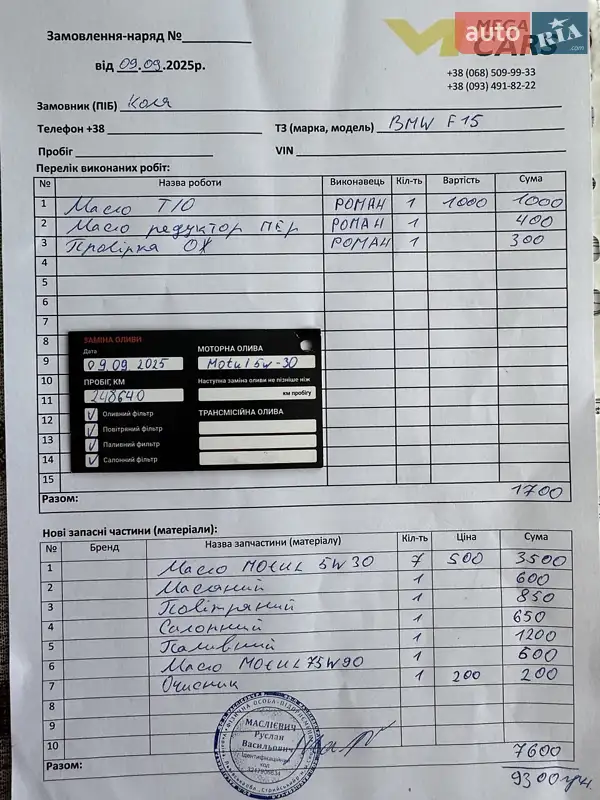 MEGA CARS
auto RIA .com
Замовлення-наряд №
від 09.09.2025р.
+38 (068) 509-99-33
+38 (093) 491-82-22
Замовник (ПІБ) Коля
Телефон +38 ТЗ (марка, модель) BMW F15
Пробіг VIN
Перелік виконаних робіт:
№ Назва роботи Виконавець Кіл-ть Вартість Сума
1 Масло Т/О РОМАН 1 1000 1000
2 Масло редуктор пер РОМАН 1 400
3 Провірка ОЖ РОМАН 1 300
4
5
6
7
8
9
10
11
12
13
14
15
ЗАМІНА ОЛИВИ
Дата
09.09 2025
ПРОБІГ, КМ
248640
Оливний фільтр
Повітряний фільтр
Паливний фільтр
Салонний фільтр
МОТОРНА ОЛИВА
Motul 5w-30
Наступна заміна оливи не пізніше ніж
км пробігу
ТРАНСМІСІЙНА ОЛИВА
Разом: 1700
Нові запасні частини (матеріали):
№ Бренд Назва запчастини (матеріалу) Кіл-ть Ціна Сума
1 Масло MOtUL 5W30 7 500 3500
2 Масляний 1 600
3 Повітряний 1 850
4 Салонний 1 650
5 Паливний 1 1200
6 Масло MOtUL 75W90 1 600
7 Очисник 1 200 200
8
9
10
МАСЛІЄВИЧ
Руслан
Васильович
Ідентифікаційний
код
Разом: 7600
9300грн